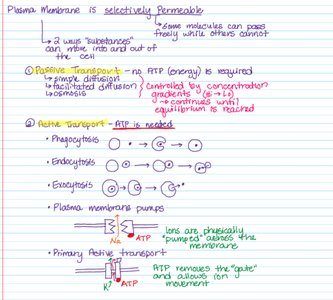 Plasma Membrane is selectively Permeable
↳ some molecules can pass
freely while others cannot
↳ 2 ways "substances"
can move into and out of
the cell
① Passive Transport - no ATP (energy) is required
↳ simple diffusion
↳ facilitated diffusion
↳ osmosis
controlled by concentration
gradients (Hi → Lo)
↳ continues until
equilibrium is reached
② Active Transport - ATP is needed
• Phagocytosis
• Endocytosis
• Exocytosis
• Plasma membrane pumps
Na
ATP
Ions are physically
"pumped" across the
membrane
• Primary Active transport
K⁺
ATP
ATP removes the "gate"
and allows ion
movement